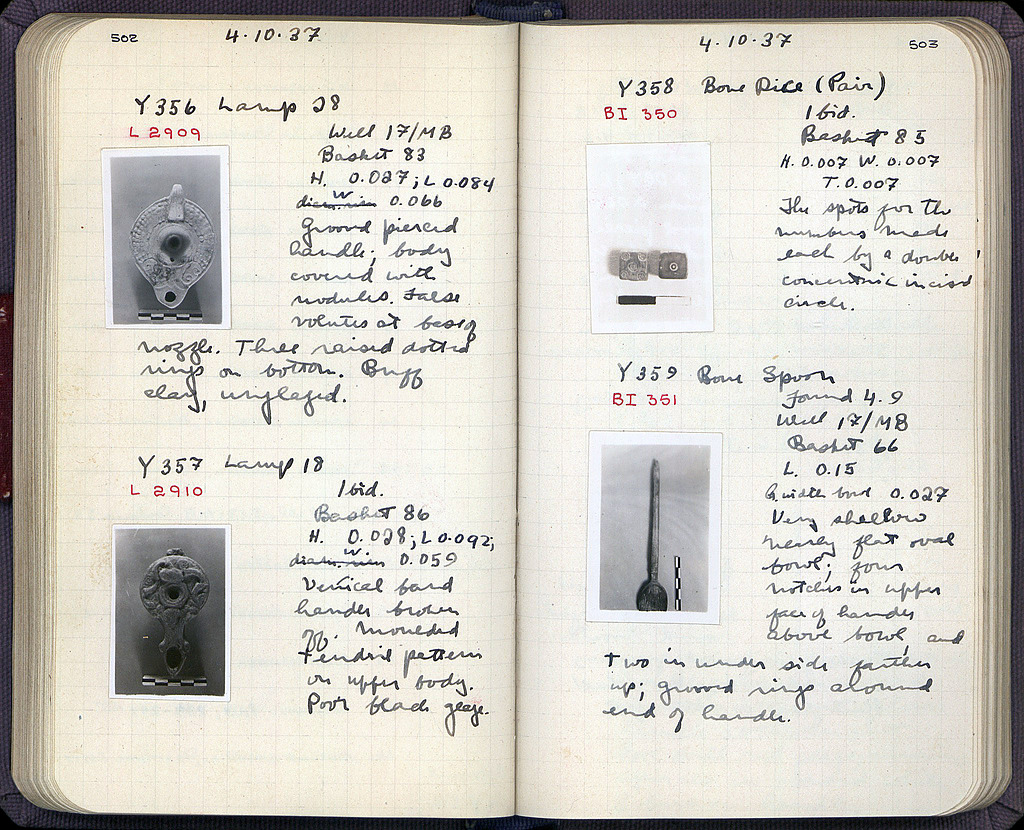 502
4.10.37
Y 356 Lamp 28
L 2909
Well 17/MB
Basket 83
H. 0.027; L 0.084
W
0.066
Grooved pierced
handle; body
covered with
nodules. False
volutes at base of
nozzle. Three raised dotted
rings on bottom. Buff
clay, unglazed.
Y 357 Lamp 18
L 2910
Ibid.
Basket 86
H. 0.028; L 0.092;
W.
0.059
Vertical band
handle broken
off. Moulded
tendril pattern
on upper body.
Poor black glaze.
4.10.37
503
Y 358 Bone Dice (Pair)
BI 350
Ibid.
Basket 85
H. 0.007 W. 0.007
T. 0.007
The spots for the
numbers made
each by a double
concentric incised
circle.
Y 359 Bone Spoon
BI 351
Found 4.9
Well 17/MB
Basket 66
L. 0.15
width bowl 0.027
Very shallow
nearly flat oval
bowl; four
notches in upper
face of handle
above bowl, and
two in under side farther
up; grooved rings around
end of handle.